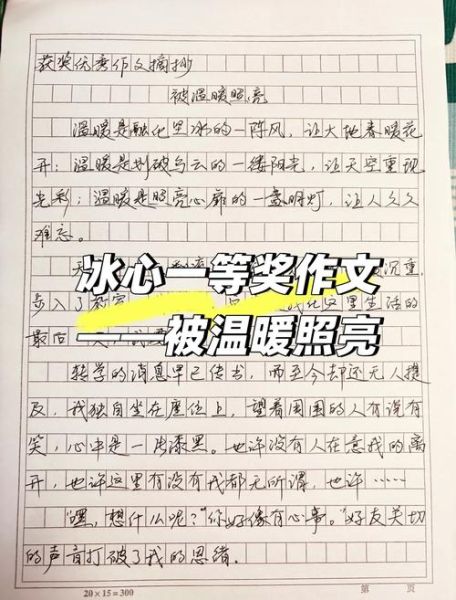 获奖优秀作文摘抄
被温暖照亮
温暖是融化坚冰的一阵风，让大地春暖花
开；温暖是划破乌云的一缕阳光，让天空重现
光彩；温暖是照亮心扉的一盏明灯，让人久久
难忘。
冰心一等奖作文
沉重，
步入了教室
这里生活的
——被温暖照亮
最后一天
转学的消息早已传书，而至今却还无人提
及，我独自坐在座位上，望着周围的人有说有
笑，心中是一片漆黑。也许没有人在意我的离
开，也许这里有没有我都无所谓，也许……
“嘿，想什么呢？”“你好像有心事。”好友关切
的声音打破了我的思绪。
20×15=300
第 页